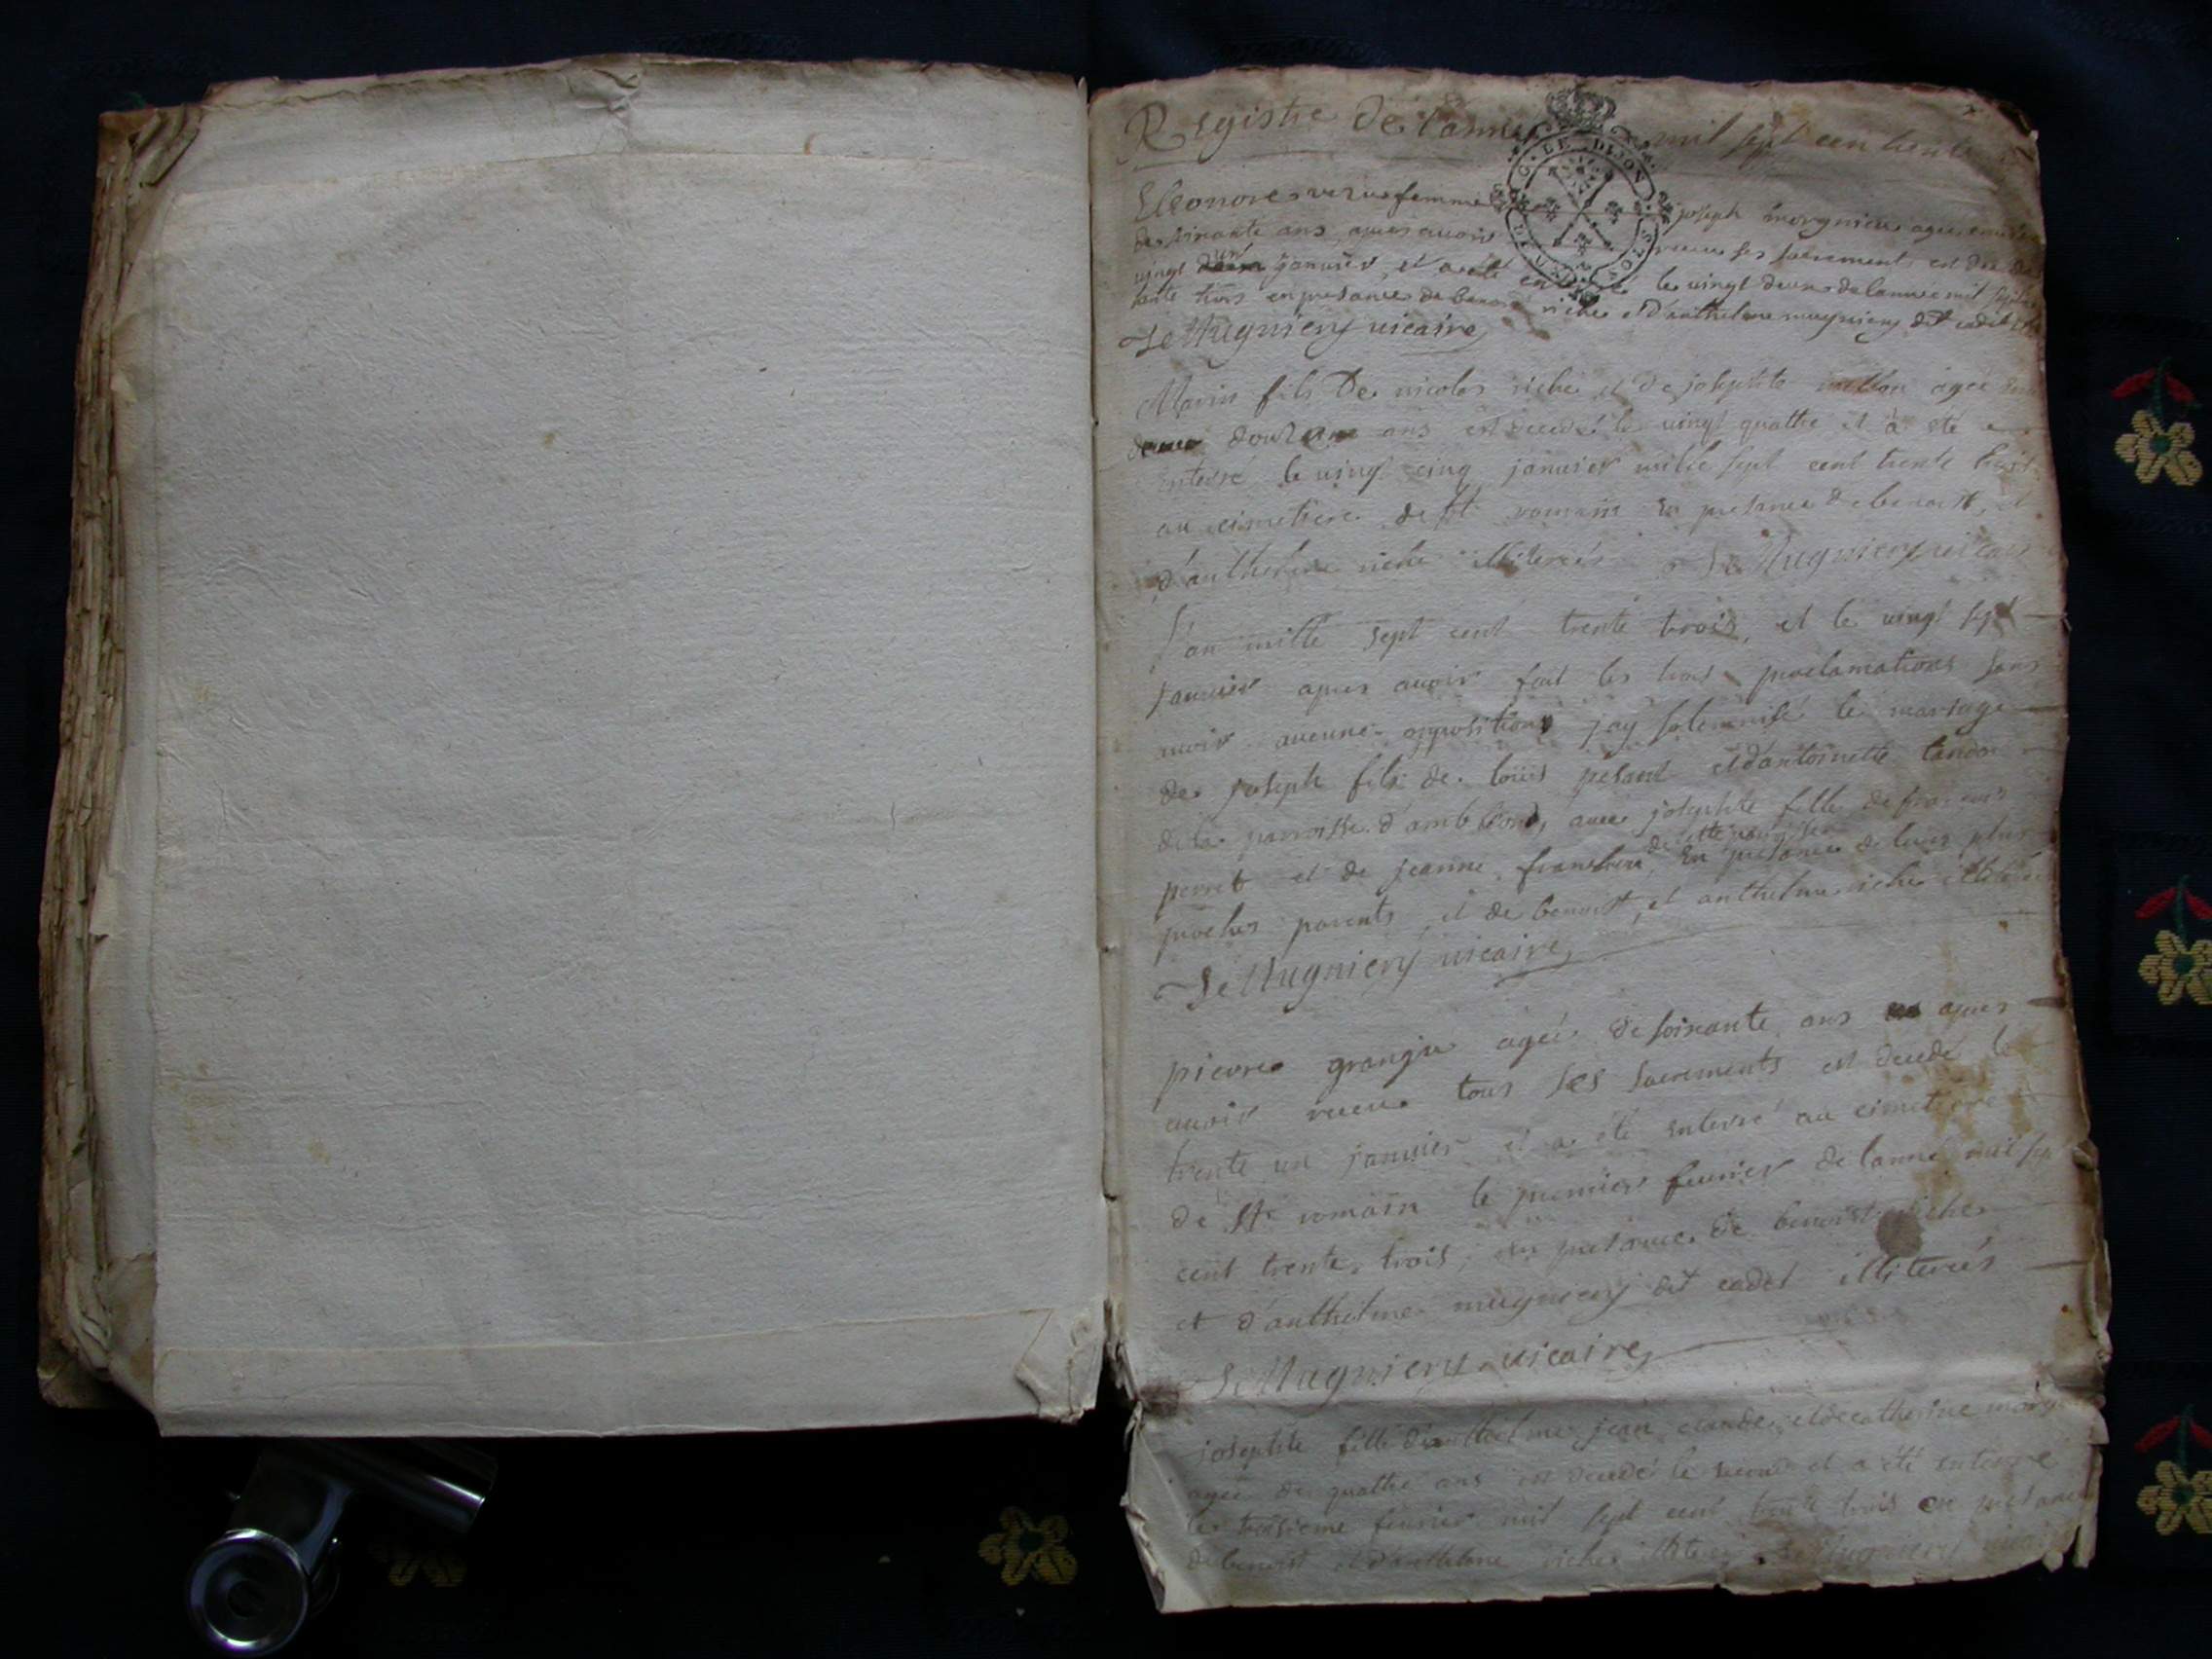 Registre de l'anneé mil sept cent trente
G. DE DIJON
Eleonore femme joseph morgnieu ageé environ
de soixante ans apres avoir receu ses sacrements est
vingt un janvier, et a eté enterré le vingt deux de lanneé mil sept
trente trois en presance de benoist riche et d'anthelme mugniery dit cadet
Se Mugniery vicaire
Marin fils De nicolas riche et de josephte ageé
douze ans est decedé le vingt quatre et à eté
enterré le vingt cinq janvier mille sept cent trente trois
au cimetiere de st romain en presance de benoist, et
d'anthelme riche illitereés Se Mugniery vicaire
L'an mille sept cent trente trois, et le vingt sept
janvier apres avoir fait les trois proclamations sans
avoir aucune opposition jay solemnisé le mariage
de joseph fils de loüis pesant et d'antoinette
de la parroisse d'ambleon, avec josephte fille de francois
perret et de jeanne de cette parroisse en presance de leurs plus
proches parents, et de benoist, et anthelme riche
Se Mugniery vicaire
pierre ageé de soixante ans apres
avoir receu tous ses sacrements est decedé le
trente un janvier et a eté enterré au cimetiere
de st romain le premier fevrier de lanneé mil sept
cent trente trois, en presance de benoist riche
et d'anthelme mugniery dit cadet illitereés
Se Mugniery vicaire
josephte fille d'anthelme jean claude, et de catherine
ageé de quatre ans est decedé le second et a eté enterré
le troisieme fevrier mil sept cent trente trois en presance
de benoist et d'anthelme riche Se Mugniery vicaire